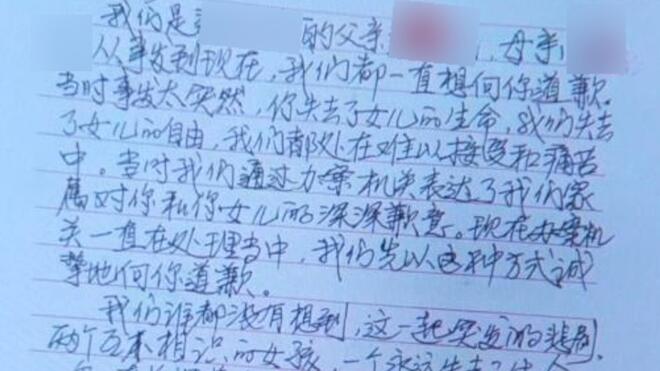 我们是 的父亲 ，母亲
从事发到现在，我们都一直想向你道歉。
当时事发太突然，你失去了女儿的生命，我们失去
了女儿的自由，我们都处在难以接受和痛苦
中。当时我们通过办案机关表达了我们家
属对你和你女儿的深深歉意。现在办案机
关一直在处理当中，我们先以这种方式诚
挚地向你道歉。
我们谁都没有想到，这一起突发的悲剧。
两个互不相识的女孩，一个永远失去了生命